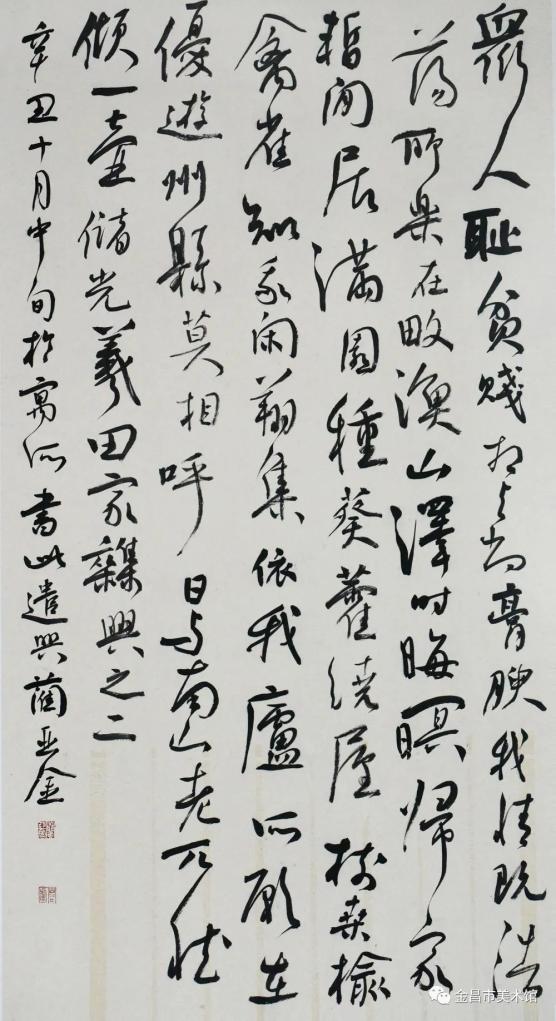 眾人耻貧賤相与尚膏腴我情既浩
蕩所樂在畋漁山澤时晦暝歸家
暫閒居滿園種葵藿繞屋樹桑榆
禽雀知我闲翔集依我廬所願在
優遊州縣莫相呼日与南山老兀然
傾一壺儲光羲田家雜興之二
辛丑十月中旬於寓所書此遣興藺亞金
金昌市美术馆